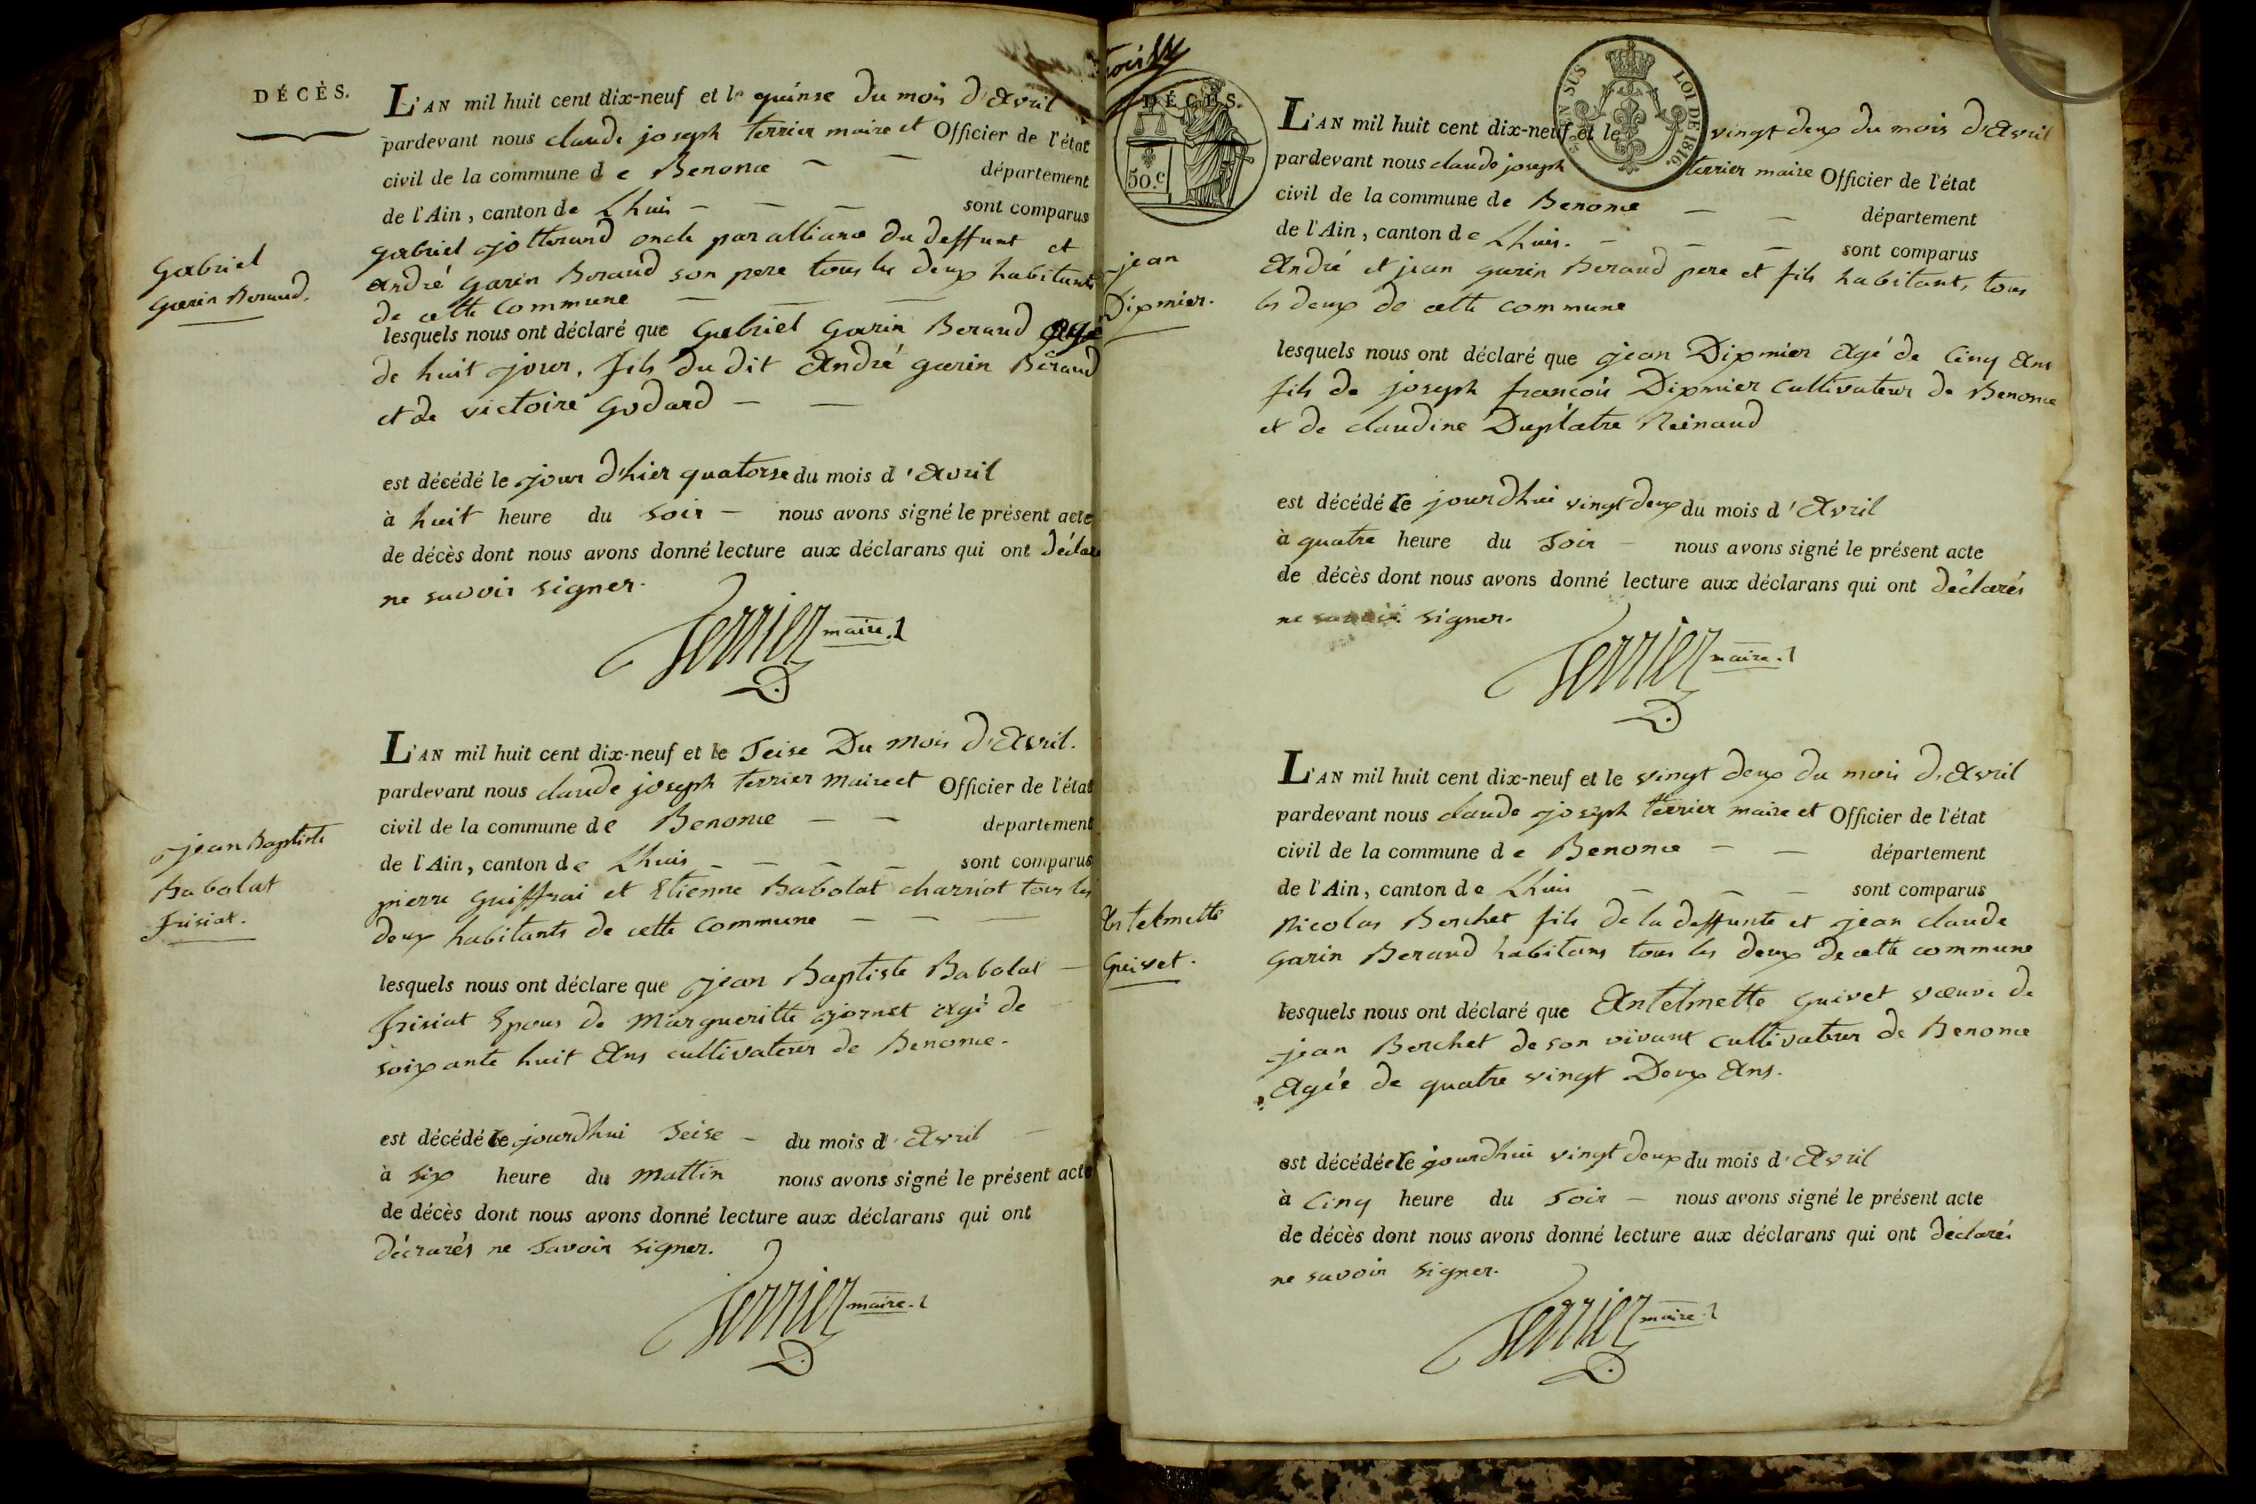 DÉCÈS.
L'AN mil huit cent dix-neuf et le quinse du mois d'Avril
pardevant nous claude joseph terrier maire et Officier de l'état
civil de la commune de Benonce département
de l'Ain, canton de Lhuis sont comparus
gabriel jotterand oncle par alliance du deffunt et
André garin Beraud son pere tous les deux habitants
de cette commune
Gabriel
garin Beraud.
lesquels nous ont déclaré que gabriel garin Beraud agé
de huit jour, fils du dit André garin Béraud
et de victoire godard
est décédé le jour d'hier quatorse du mois d'Avril
à huit heure du soir nous avons signé le présent acte
de décès dont nous avons donné lecture aux déclarans qui ont déclaré
ne savoir signer.
Terrier maire.
L'AN mil huit cent dix-neuf et le seise Du mois d'Avril.
pardevant nous claude joseph terrier maire et Officier de l'état
civil de la commune de Benonce département
de l'Ain, canton de Lhuis sont comparus
pierre guiffrai et Etienne Babolat charriot tous les
deux habitants de cette commune
jean Baptiste
Babolat
frisiat.
lesquels nous ont déclare que jean Baptiste Babolat
frisiat Epous de Margueritte jornet agé de
soixante huit Ans cultivateur de Benonce.
est décédé le jourdhui seise du mois d'Avril
à six heure du mattin nous avons signé le présent acte
de décès dont nous avons donné lecture aux déclarans qui ont
déclarés ne savoir signer.
Terrier maire.
DÉCÈS.
50.c
EN SUS
LOI DE 1816.
L'AN mil huit cent dix-neuf et le vingt deux du mois d'Avril
pardevant nous claude joseph terrier maire Officier de l'état
civil de la commune de Benonce département
de l'Ain, canton de Lhuis. sont comparus
André et jean garin Beraud pere et fils habitants tous
les deux de cette commune
jean
Dixmier.
lesquels nous ont déclaré que jean Dixmier agé de Cinq Ans
fils de joseph françois Dixmier cultivateur de Benonce
et de claudine Duplatre Reinaud
est décédé le jourdhui vingt deux du mois d'Avril
à quatre heure du soir nous avons signé le présent acte
de décès dont nous avons donné lecture aux déclarans qui ont déclarés
ne savoir signer.
Terrier maire.
L'AN mil huit cent dix-neuf et le vingt deux du mois d'Avril
pardevant nous claude joseph terrier maire et Officier de l'état
civil de la commune de Benonce département
de l'Ain, canton de Lhuis sont comparus
Nicolas Berchet fils de la deffunte et jean claude
garin Beraud habitans tous les deux de cette commune
Antelmette
Guivet.
lesquels nous ont déclaré que Antelmette guivet vœuve de
jean Berchet de son vivant cultivateur de Benonce
Agée de quatre vingt Deux Ans.
est décédée le jourdhui vingt deux du mois d'Avril
à Cinq heure du soir nous avons signé le présent acte
de décès dont nous avons donné lecture aux déclarans qui ont déclarés
ne savoir signer.
Terrier maire.